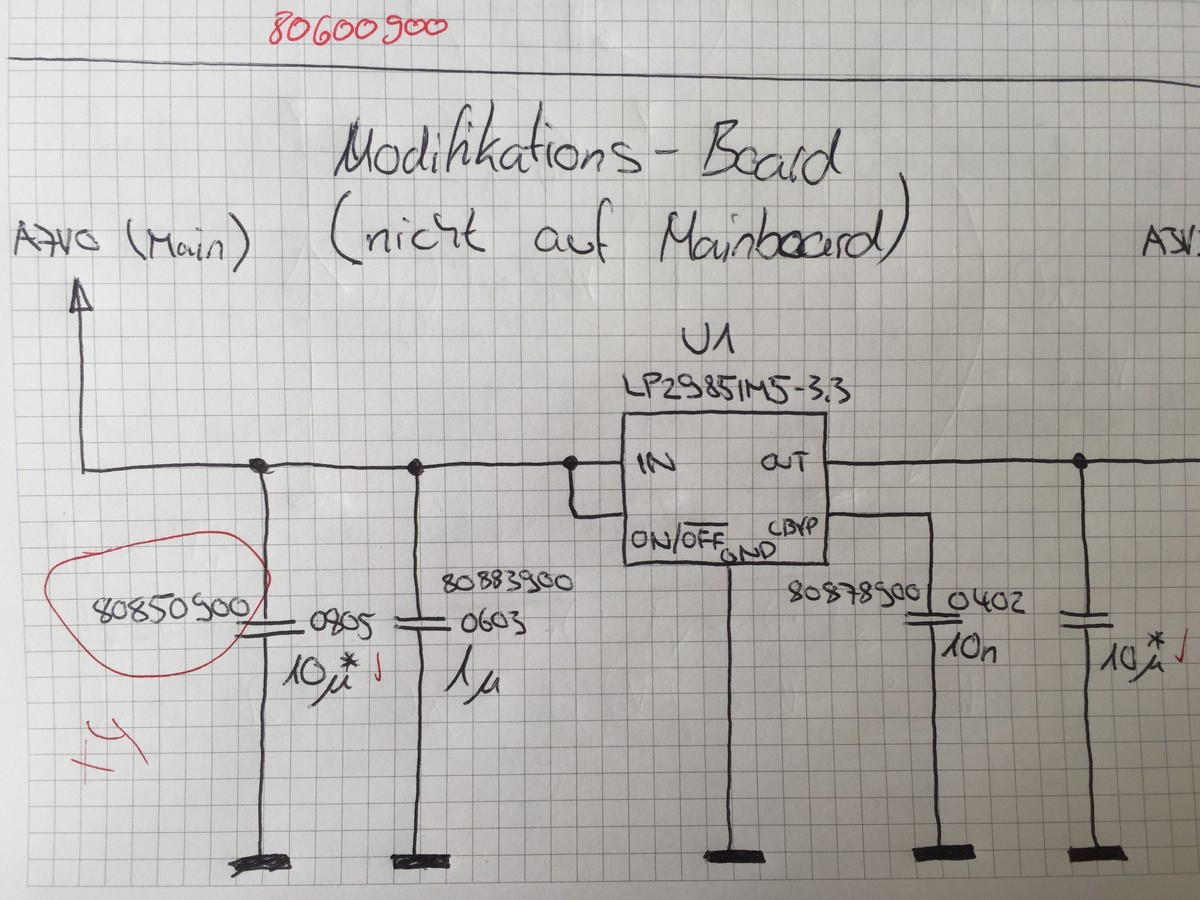 80600900
Modifikations - Board
(nicht auf Mainboard)
A7V0 (Main)
A3V3
U1
LP2985IM5-3.3
IN OUT
ON/OFF GND CBYP
80850900 0805
10µ*
80883900
0603
1µ
80878900 0402
10n
10µ*